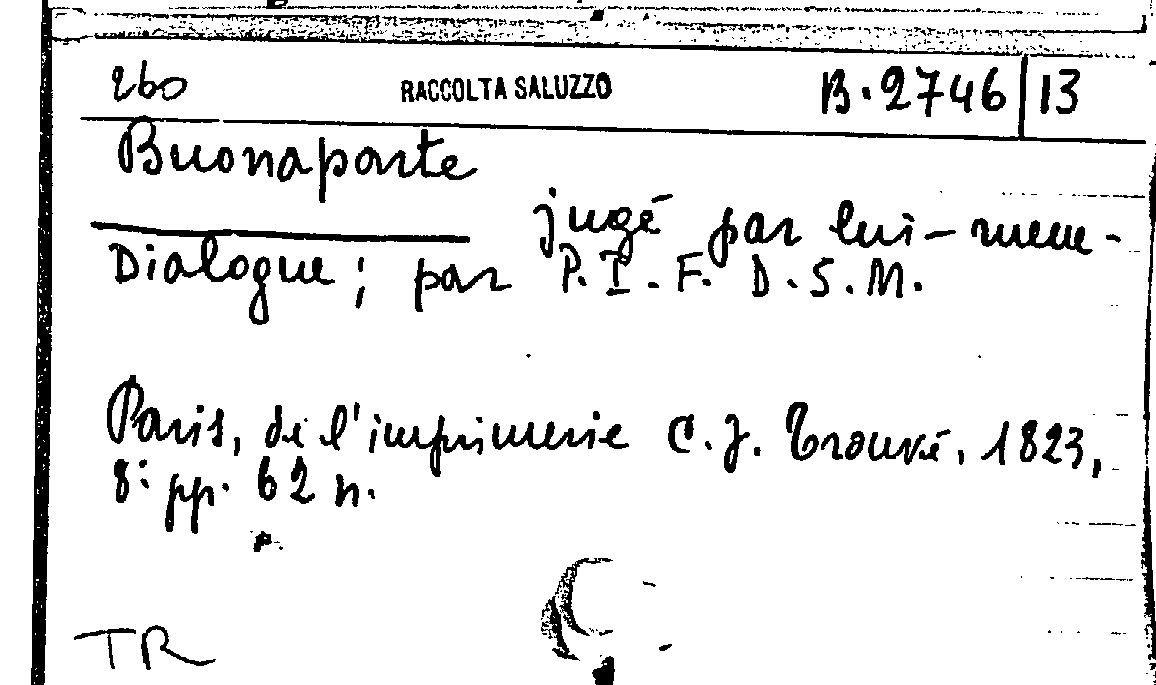 260 RACCOLTA SALUZZO B.2746 | 13
Buonaparte
jugé par lui-meme.
Dialogue; par P. I. F. D. S. M.
Paris, de l'imprimerie C. J. Trouvé, 1823,
8: pp. 62 n.
TR